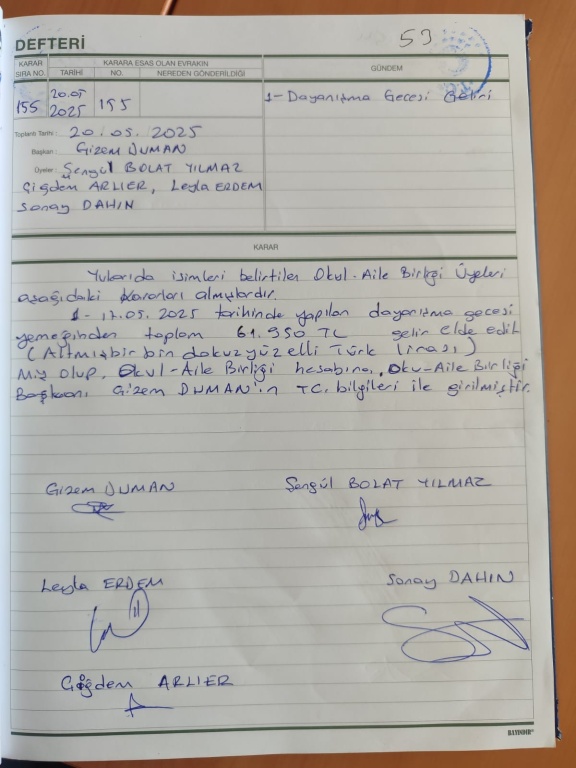 DEFTERİ
53
KARAR SIRA NO.
KARARA ESAS OLAN EVRAKIN
TARİHİ NO. NEREDEN GÖNDERİLDİĞİ
GÜNDEM
155 20.05 2025 155
1- Dayanışma Gecesi Geliri
Toplantı Tarihi : 20.05.2025
Başkan : Gizem DUMAN
Üyeler : Şengül BOLAT YILMAZ
Çiğdem ARLIER, Leyla ERDEM
Sonay DAHIN
KARAR
Yukarıda isimleri belirtilen Okul-Aile Birliği Üyeleri
aşağıdaki kararları almışlardır.
1- 17.05.2025 tarihinde yapılan dayanışma gecesi
yemeğinden toplam 61.950 TL gelir elde edil
(Altmışbir bin dokuzyüzelli Türk lirası)
miş olup, Okul-Aile Birliği hesabına, Oku-Aile Birliği
Başkanı Gizem DUMAN'ın TC. bilgileri ile girilmiştir.
Gizem DUMAN
Şengül BOLAT YILMAZ
Leyla ERDEM
Sonay DAHIN
Çiğdem ARLIER
BAYINDIR